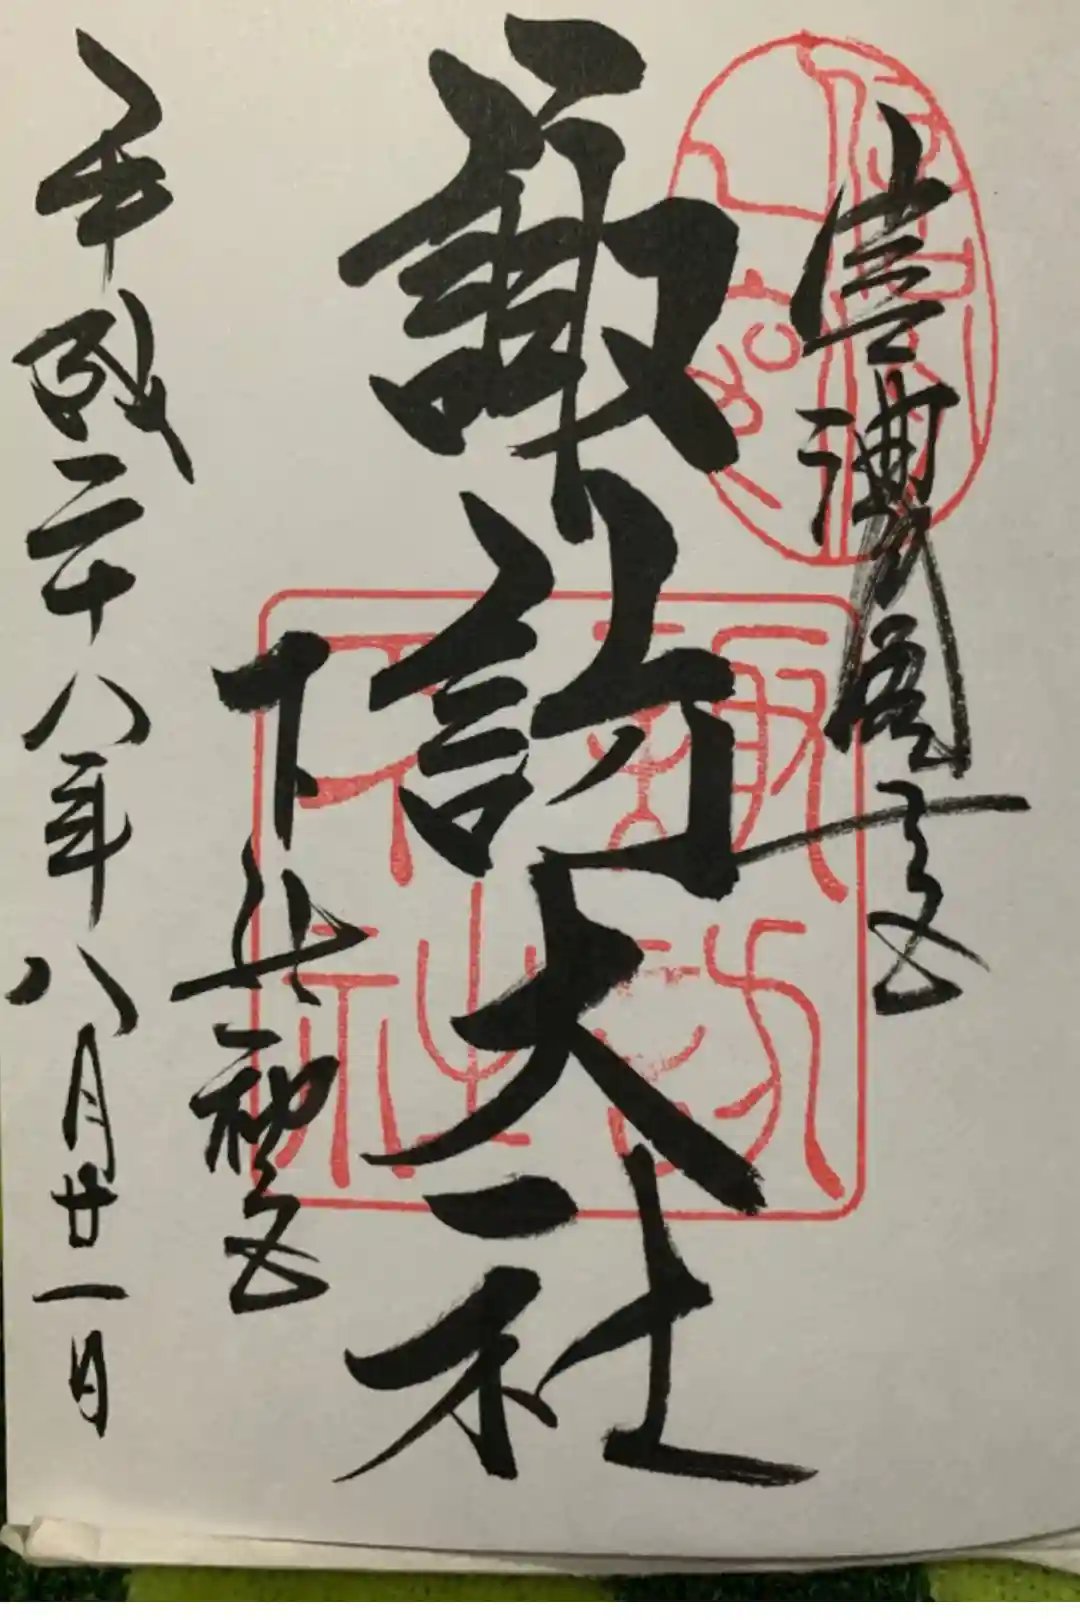 信濃國一之宮
諏訪大社
下社秋宮
平成二十八年八月廿一日